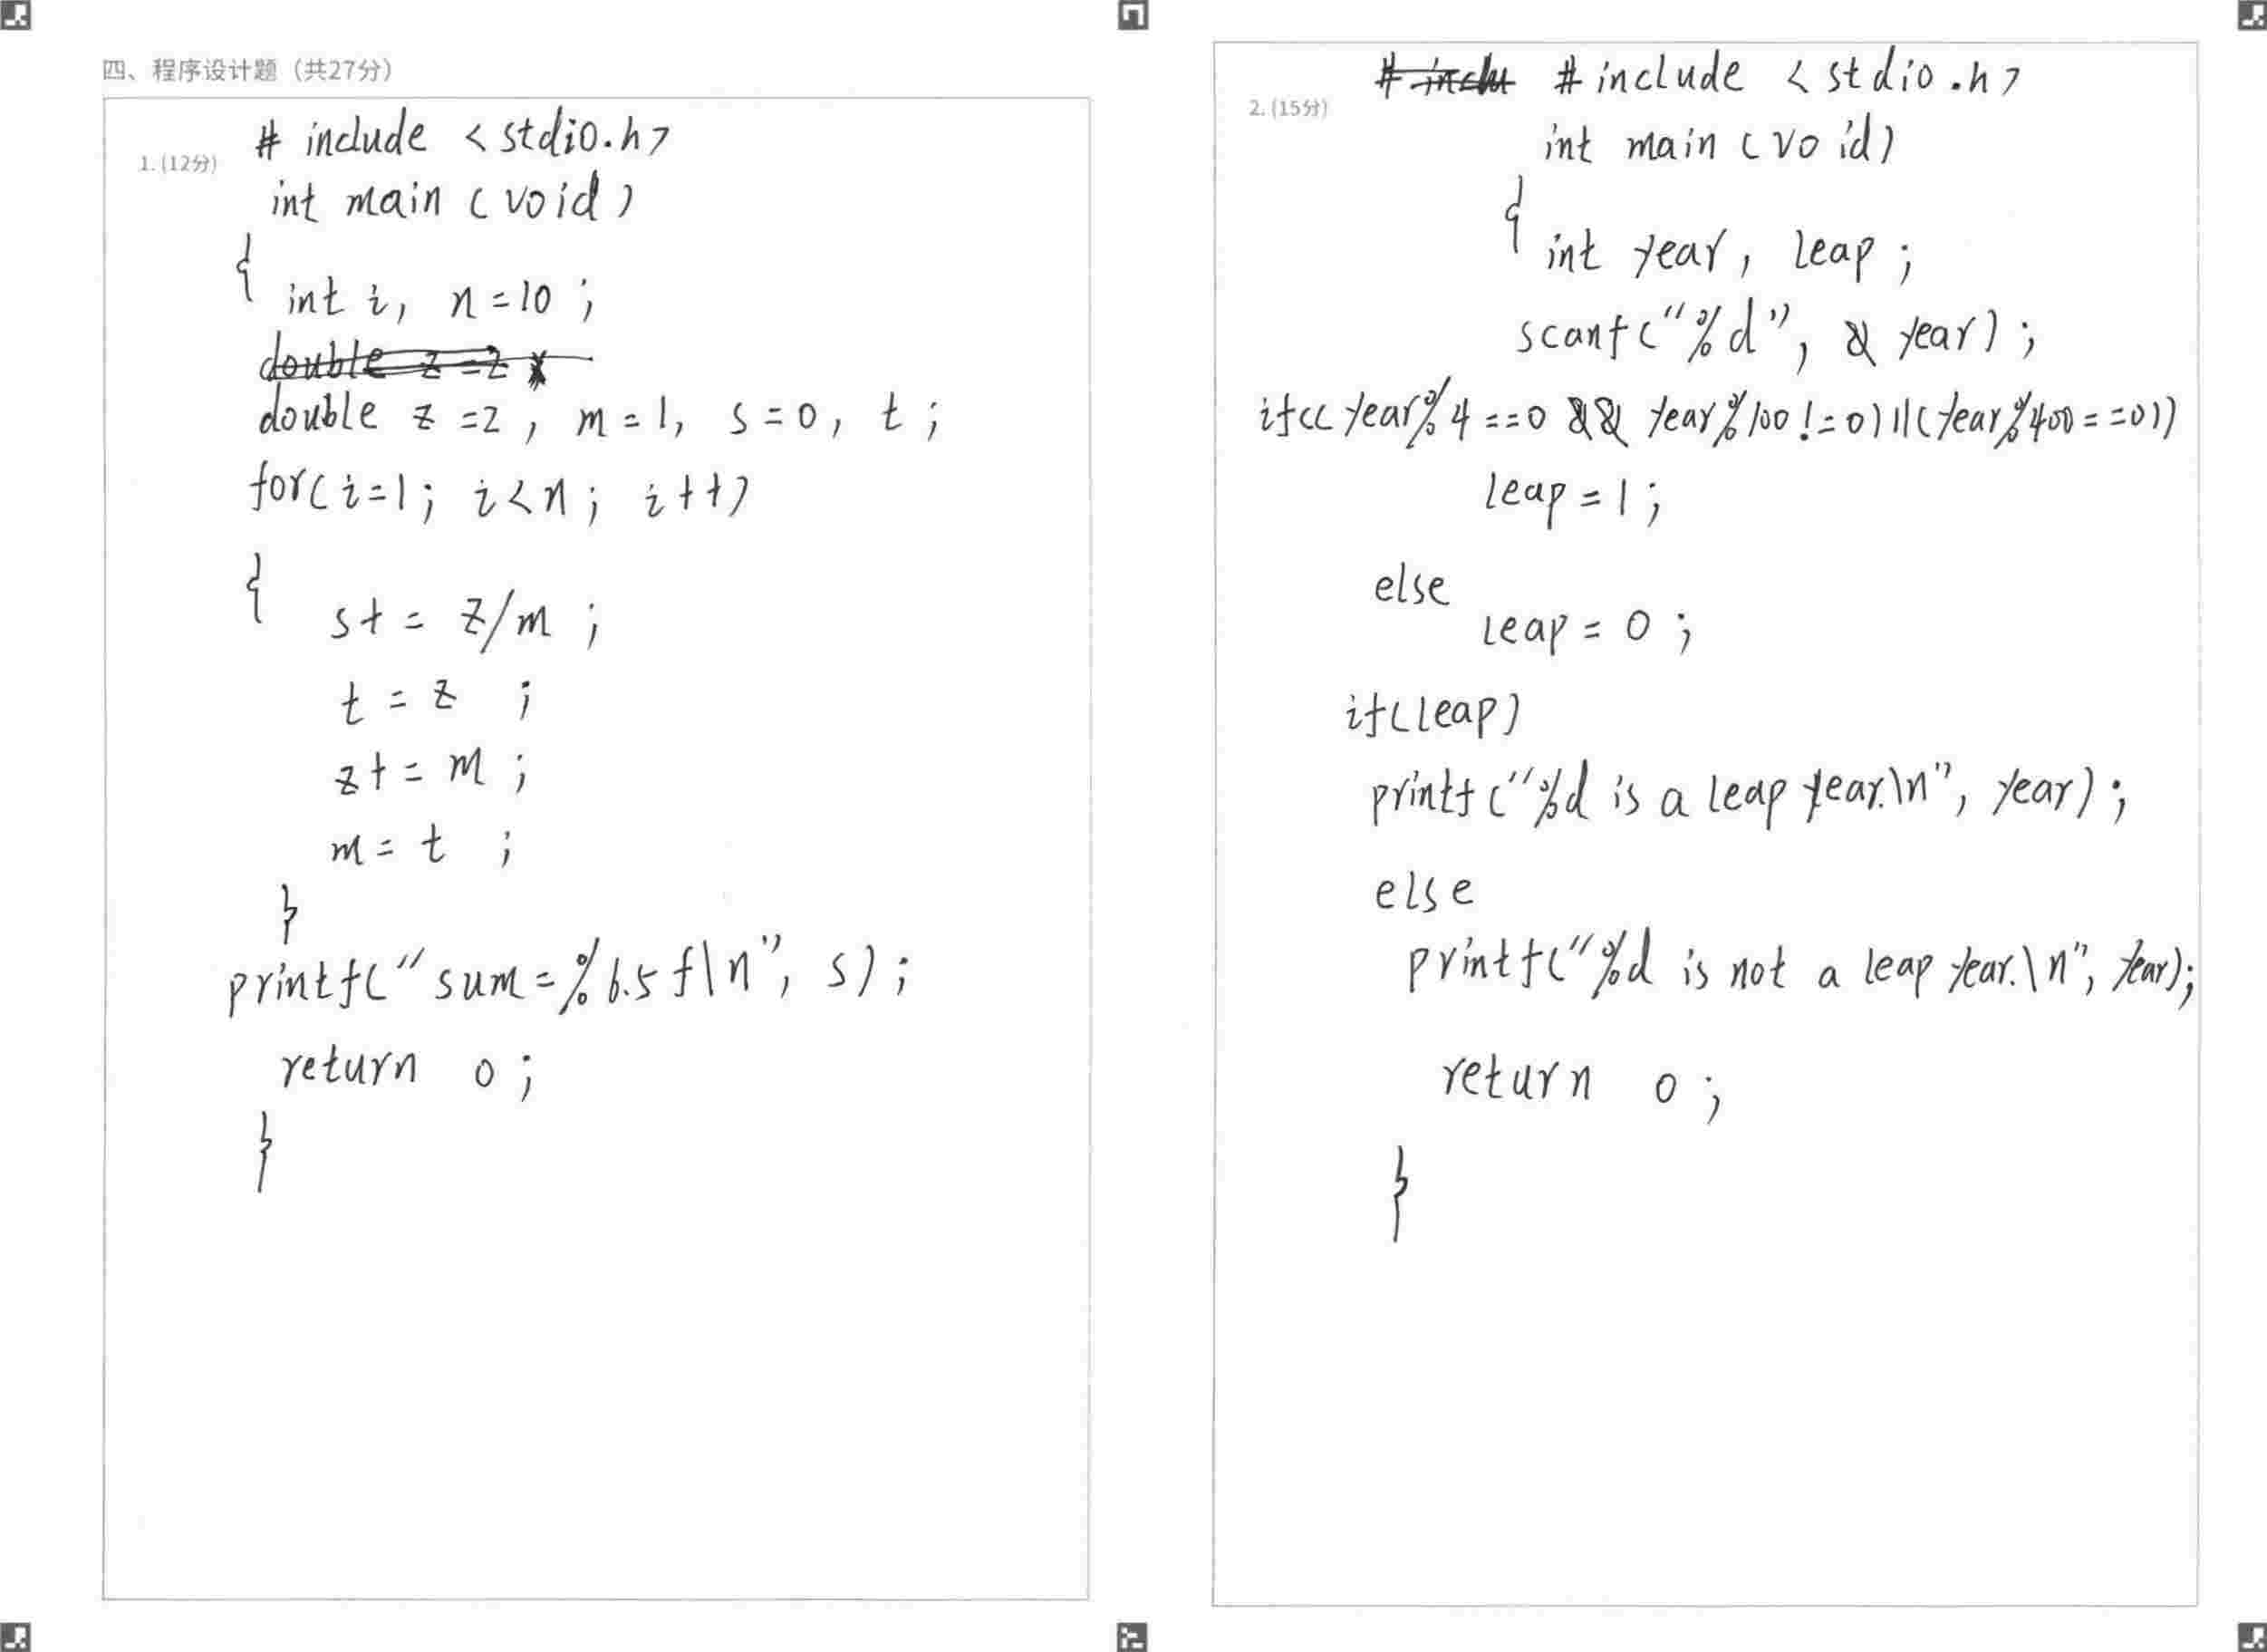 四、程序设计题（共27分）
1. (12分)
# include <stdio.h>
int main (void)
{
int i, n=10 ;
double z =2
double z =2 , m=1, s=0, t ;
for(i=1; i<n; i++)
{
s+= z/m ;
t = z ;
z+= m ;
m= t ;
}
printf("sum=%6.5f\n", s);
return 0 ;
}
2. (15分)
# inclu #include <stdio.h>
int main (void)
{
int year, leap ;
scanf("%d", & year) ;
if(( year%4==0 && year%100!=0)||(year%400==0))
leap=1 ;
else
leap= 0 ;
if(leap)
printf("%d is a leap year.\n", year) ;
else
printf("%d is not a leap year.\n", year);
return 0 ;
}